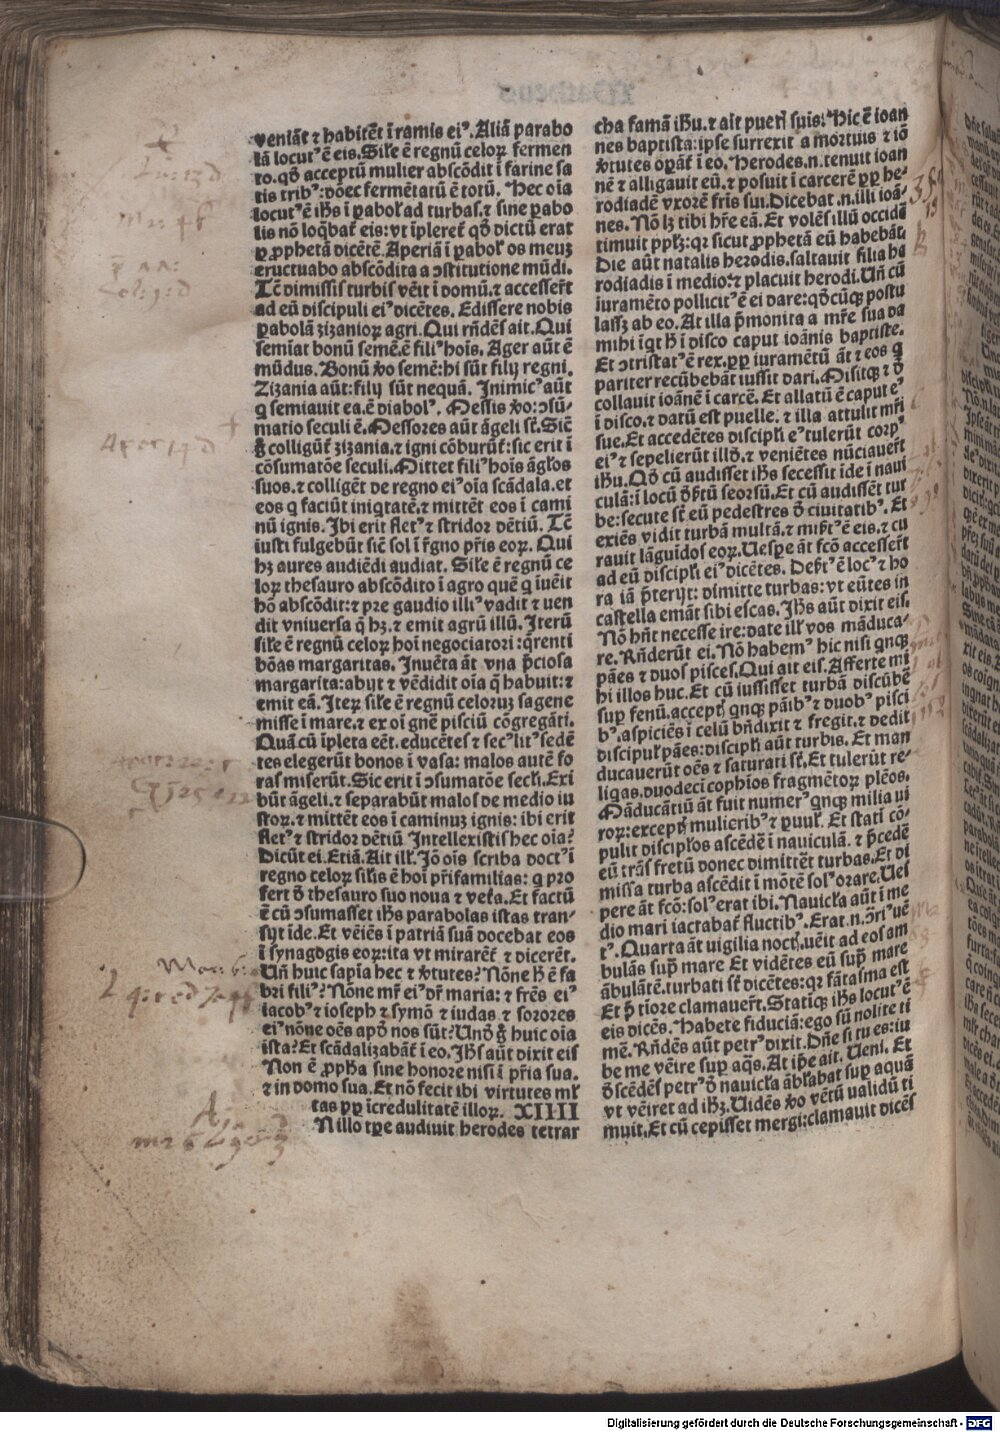 veniāt ⁊ habitēt ī ramis eiꝰ. Aliā parabo
lā locutꝰ ē eis. Sile ē regnū celoꝝ fermen
to. qḋ acceptū mulier abscōdit ī farine sa
tis tribꝰ: dōec fermētatū ē totū. Hec oīa
locutꝰ ē ihs ī ꝑabol ad turbas. ⁊ sine ꝑabo
lis nō loq̄bat eis: vt īpleret qḋ dictū erat
ꝑ ꝓphetā dicētē. Aperiā ī ꝑabol os meuꝫ
eructuabo abscōdita a ↄstitutione mūdi.
Tē dimissis turbis vēit ī domū. ⁊ accessert
ad eū discipuli eiꝰ dicētes. Edissere nobis
ꝑabolā zizanioꝝ agri. Qui rn̄dēs ait. Qui
semīat bonū semē. ē filiꝰ hoīs. Ager aūt ē
mūdus. Bonū ẜo semē: hi sūt filij regni.
Zizania aūt: filij sūt nequā. Inimicꝰ aūt
q semiauit ea. ē diabolꝰ. Messis ẜo: ↄsū-
matio seculi ē. Messores aūt āgeli st̄. Sic̄
g̊ colligūt zizania. ⁊ igni cōburūt: sic erit ī
cōsumatōe seculi. Mittet filiꝰ hoīs āglos
suos. ⁊ colligēt de regno eiꝰ oīa scādala. et
eos q faciūt iniqtatē. ⁊ mittēt eos ī cami
nū ignis. Ibi erit fletꝰ ⁊ stridor dētiū. Tē
iusti fulgebūt sic̄ sol ī r̄gno p̄ris eoꝝ. Qui
hꝫ aures audiēdi audiat. Sile ē regnū ce
loꝝ thesauro abscōdito ī agro quē q īuēit
hō abscōdit: ⁊ pre gaudio illiꝰ vadit ⁊ uen
dit vniuersa q̄ hꝫ. ⁊ emit agrū illū. Iterū
sile ē regnū celoꝝ hoī negociatori: q̄renti
bōas margaritas. Inuēta āt vna p̄ciosa
margarita: abijt ⁊ vēdidit oīa q̄ habuit: ⁊
emit eā. Iteꝝ sile ē regnū celoruꝫ sagene
misse ī mare. ⁊ ex oī gn̄e pisciū cōgregāti.
Quā cū īpleta eēt. educētes ⁊ secꝰ litꝰ sedē
tes elegerūt bonos ī vasa: malos autē fo
ras miserūt. Sic erit ī ↄsumatōe secli. Exi
būt āgeli. ⁊ separabūt malos de medio iu
stoꝝ. ⁊ mittēt eos ī caminuꝫ ignis: ibi erit
fletꝰ ⁊ stridor dētiū Intellexistis hec oīa?
Dicūt ei. Etiā. Ait ill. Iō oīs scriba doctꝰ ī
regno celoꝝ silis ē hoī pr̄ifamilias: q pro
fert ḋ thesauro suo noua ⁊ veta. Et factū
ē cū ↄsumasset ihs parabolas istas tran-
sijt īde. Et vēiēs ī patriā suā docebat eos
ī synagogis eoꝝ: ita vt mirarēt ⁊ dicerēt.
Un̄ huic sapīa hec ⁊ ẜtutes? Nōne h̄ ē fa
bri filiꝰ? Nōne mr̄ eiꝰ dr̄ maria: ⁊ fr̄es eiꝰ
iacobꝰ ⁊ ioseph ⁊ symō ⁊ iudas ⁊ sorores
eiꝰ nōne oēs apḋ nos sūt? Unḋ g̊ huic oīa
ista? Et scādalizabāt ī eo. Ihs aūt dixit eis
Non ē ꝓpha sine honore nisi ī pr̄ia sua.
⁊ in domo sua. Et nō fecit ibi virtutes ml
tas ꝓꝑ īcredulitatē illoꝝ. XIIII
N illo tꝑe audiuit herodes tetrar
cha famā ihu. ⁊ ait pueri suis: Hic ē ioan
nes baptista: ipse surrexit a mortuis ⁊ iō
ẜtutes oꝑāt ī eo. Herodes. n. tenuit ioan
nē ⁊ alligauit eū. ⁊ posuit ī carcerē ꝓꝑ he-
rodiadē vxorē fr̄is sui. Dicebat .n. illi ioā-
nes. Nō lꝫ tibi hr̄e eā. Et volēs illū occidē
timuit pplꝫ: qꝛ sicut ꝓphetā eū habebāt.
Die aūt natalis herodis. saltauit filia he
rodiadis ī medio: ⁊ placuit herodi. Un̄ cū
iuramēto pollicitꝰ ē ei dare: qḋcūqꝫ postu
lassꝫ ab eo. At illa p̄monita a mr̄e sua da
mihi īqt h̄ ī disco caput ioānis baptiste.
Et ↄtristatꝰ ē rex. ꝓꝑ iuramētū āt ⁊ eos q
pariter recūbebāt iussit dari. Misitqꝫ ⁊ ḋ
collauit ioānē ī carcē. Et allatū ē caput eꝰ
ī disco. ⁊ datū est puelle. ⁊ illa attulit mr̄i
sue. Et accedētes discipli eꝰ tulerūt corpꝰ
eiꝰ ⁊ sepelierūt illḋ. ⁊ veniētes nūciauert
ihu. Qḋ cū audisset ihs secessit īde ī naui
culā: ī locū ḋsertū seorsū. Et cū audissēt tur
be: secute st̄ eū pedestres ḋ ciuitatibꝰ. Et
exiēs vidit turbā multā. ⁊ misertꝰ ē eis. ⁊ cu
rauit lāguidos eoꝝ. Uespe āt fcō accessert
ad eū discipli eiꝰ dicētes. Desertꝰ ē locꝰ ⁊ ho
ra iā p̄terijt: dimitte turbas: vt eūtes in
castella emāt sibi escas. Ihs aūt dixit eis.
Nō hn̄t necesse ire: date ill vos māduca-
re. Rn̄derūt ei. Nō habemꝰ hic nisi qnqꝫ
pāes ⁊ duos pisces. Qui ait eis. Afferte mi
hi illos huc. Et cū iussisset turbā discūbē
suꝑ fenū. acceptis qnqꝫ pāibꝰ ⁊ duobꝰ pisci
bꝰ. aspiciēs ī celū bn̄dixit ⁊ fregit. ⁊ dedit
discipulis pāes: discipli aūt turbis. Et man
ducauerūt oēs ⁊ saturati st̄. Et tulerūt re-
liqas. duodecī cophios fragmētoꝝ plēos.
Māducātiū āt fuit numerꝰ qnqꝫ milia ui
roꝝ: exceptis mulieribꝰ ⁊ ꝑuul. Et stati cō-
pulit disciplos ascēdē ī nauiculā. ⁊ p̄cedē
eū trās fretū donec dimittēt turbas. Et di
missa turba ascēdit ī mōtē solꝰ orare. Ues
pere āt fcō: solꝰ erat ibi. Nauicla aūt ī me
dio mari iactabat fluctibꝰ. Erat .n. ↄriꝰ uē
tꝰ. Quarta āt uigilia noctis. uēit ad eos am
bulās suꝑ mare Et vidētes eū suꝑ mare
ābulātē. turbati st̄ dicētes: qꝛ fātasma est
Et p̄ tiore clamauert. Statiqꝫ ihs locutꝰ ē
eis dicēs. Habete fiduciā: ego sū nolite ti
mē. Rn̄dēs aūt petrꝰ dixit. Dn̄e si tu es: iu
be me vēire suꝑ aq̄s. At ip̄e ait. Ueni. Et
ḋscēdēs petrꝰ ḋ nauicla ābulabat suꝑ aquā
vt vēiret ad ihꝫ. Uidēs ẜo vētū ualidū ti
muit. Et cū cepisset mergi: clamauit dicēs
Digitalisierung gefördert durch die Deutsche Forschungsgemeinschaft - DFG